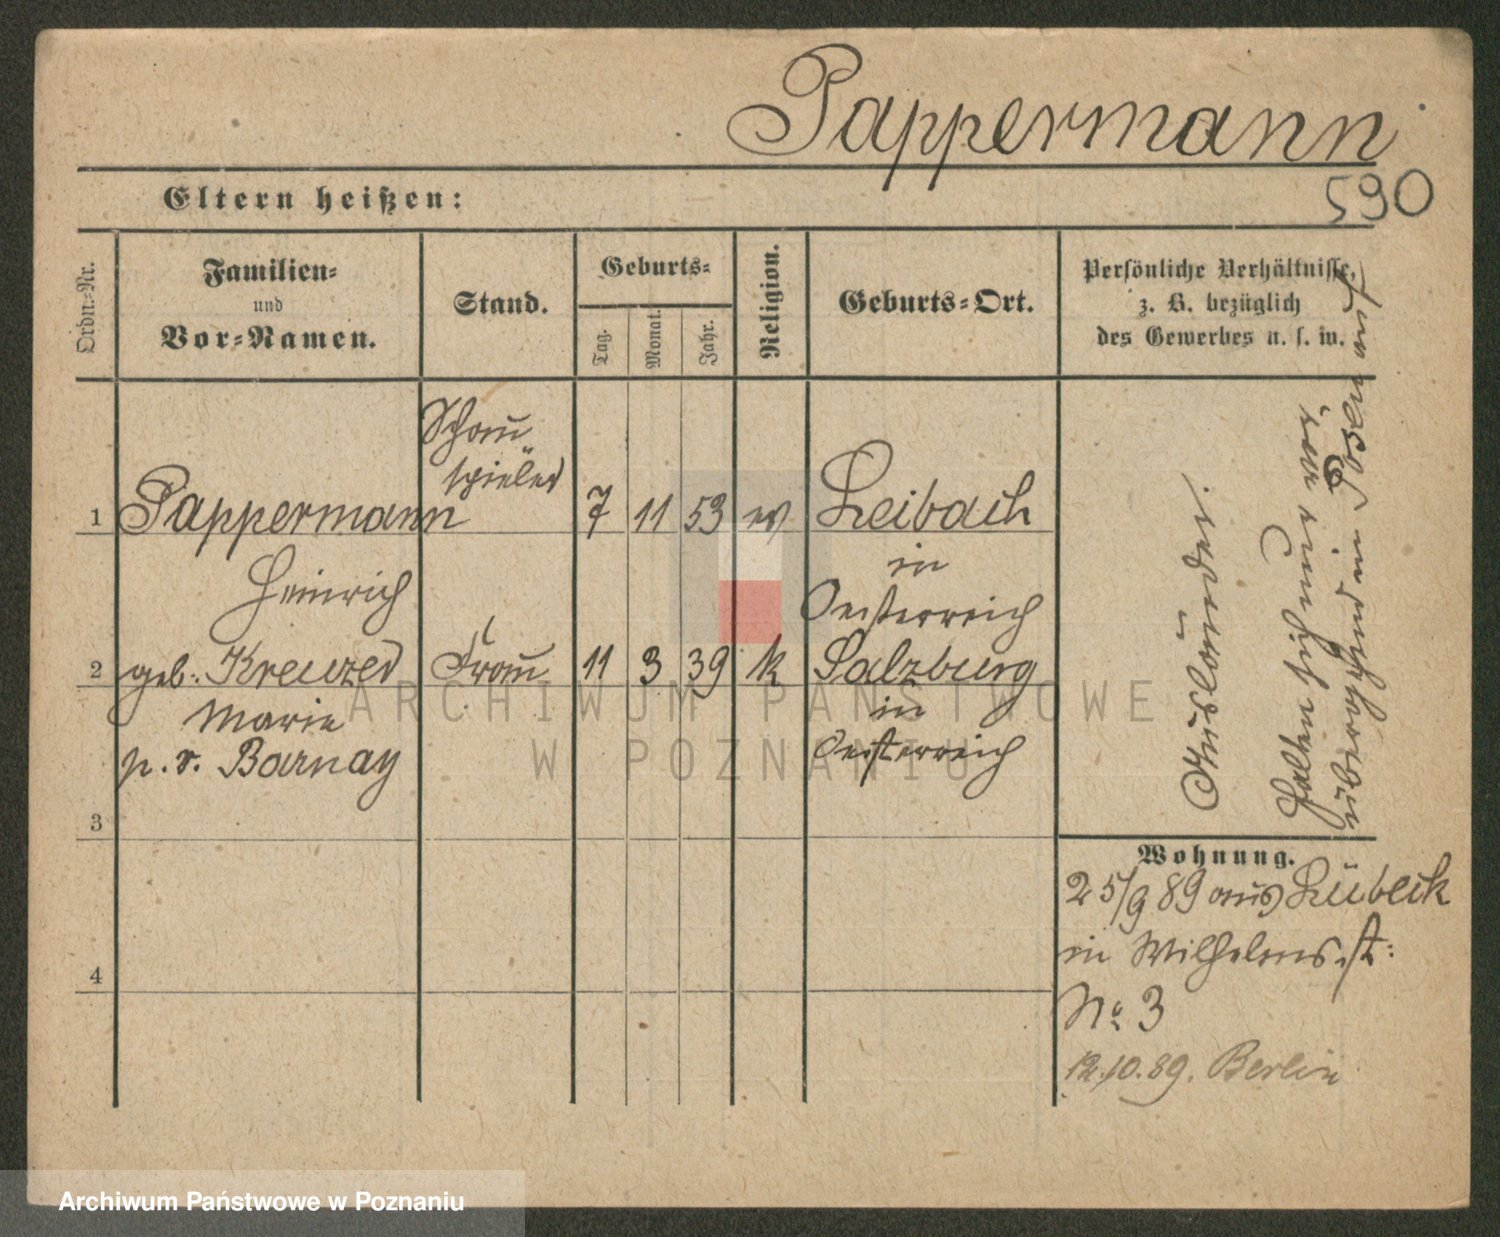 Pappermann
590
Eltern heißen:
Ordn.-Nr.
Familien-
und
Vor-Namen.
Stand.
Geburts-
Tag.
Monat.
Jahr.
Religion.
Geburts-Ort.
Persönliche Verhältnisse,
z. B. bezüglich
des Gewerbes u. s. w.
Schau
spieler
1 Pappermann 7 11 53 ev Leibach
Heinrich
in
Oesterreich
2 geb. Kreuzer Frau 11 3 39 k Salzburg
Marie
in
p. v. Barnay
Oesterreich
3
4
Ausländer.
halten sich nur vor
übergehend in Posen auf
Wohnung.
25/9 89 aus Lübeck
in Wilhelms st:
No 3
12.10.89. Berlin
ARCHIWUM PAŃSTWOWE
W POZNANIU
Archiwum Państwowe w Poznaniu